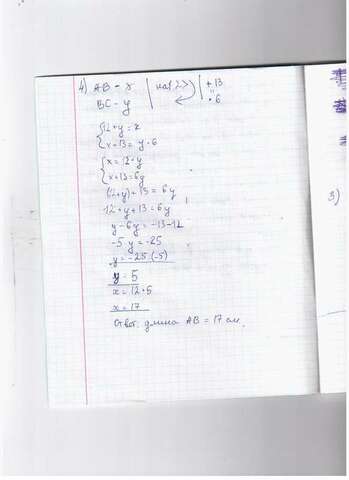 4) AB = x | на 12 > | + 13
BC - y · 6
12 + y = x
x + 13 = y · 6
x = 12 + y
x + 13 = 6y
(12 + y) + 13 = 6y
12 + y + 13 = 6y
y - 6y = -13 - 12
-5 y = -25
y = -25 : (-5)
y = 5
x = 12 + 5
x = 17
Ответ: длина AB = 17 см.
3)